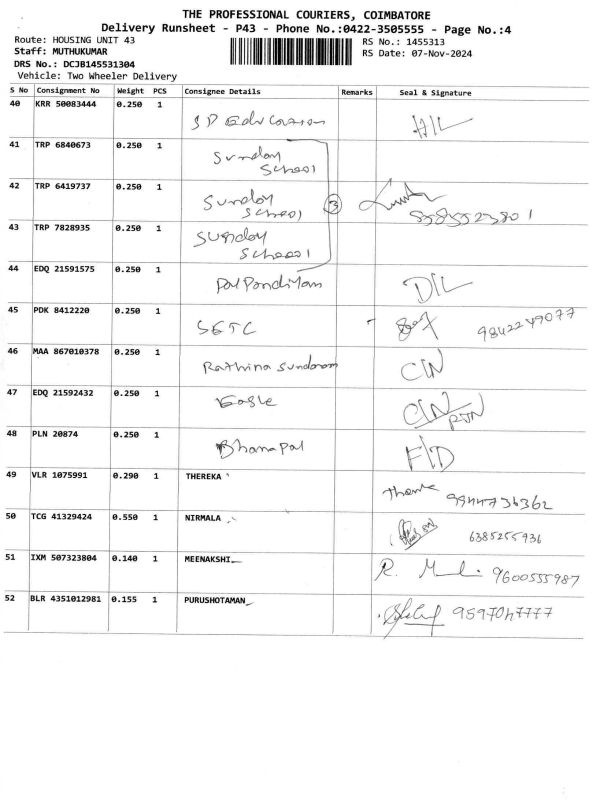 THE PROFESSIONAL COURIERS, COIMBATORE
Delivery Runsheet - P43 - Phone No.:0422-3505555 - Page No.:4
Route: HOUSING UNIT 43
RS No.: 1455313
Staff: MUTHUKUMAR
RS Date: 07-Nov-2024
DRS No.: DCJB145531304
Vehicle: Two Wheeler Delivery
S No Consignment No Weight PCS Consignee Details Remarks Seal & Signature
40 KRR 50083444 0.250 1 SD Education
41 TRP 6840673 0.250 1 Sunday School
42 TRP 6419737 0.250 1 Sunday School 3 83585523801
43 TRP 7828935 0.250 1 Sunday School
44 EDQ 21591575 0.250 1 D/L
45 PDK 8412220 0.250 1 SETC 9842249077
46 MAA 867010378 0.250 1 Rathina Sundaram C/N
47 EDQ 21592432 0.250 1 Eagle C/N RTN
48 PLN 20874 0.250 1 Dhanapal F/D
49 VLR 1075991 0.290 1 THEREKA 9944736362
50 TCG 41329424 0.550 1 NIRMALA 6385255936
51 IXM 507323804 0.140 1 MEENAKSHI 9600555987
52 BLR 4351012981 0.155 1 PURUSHOTAMAN